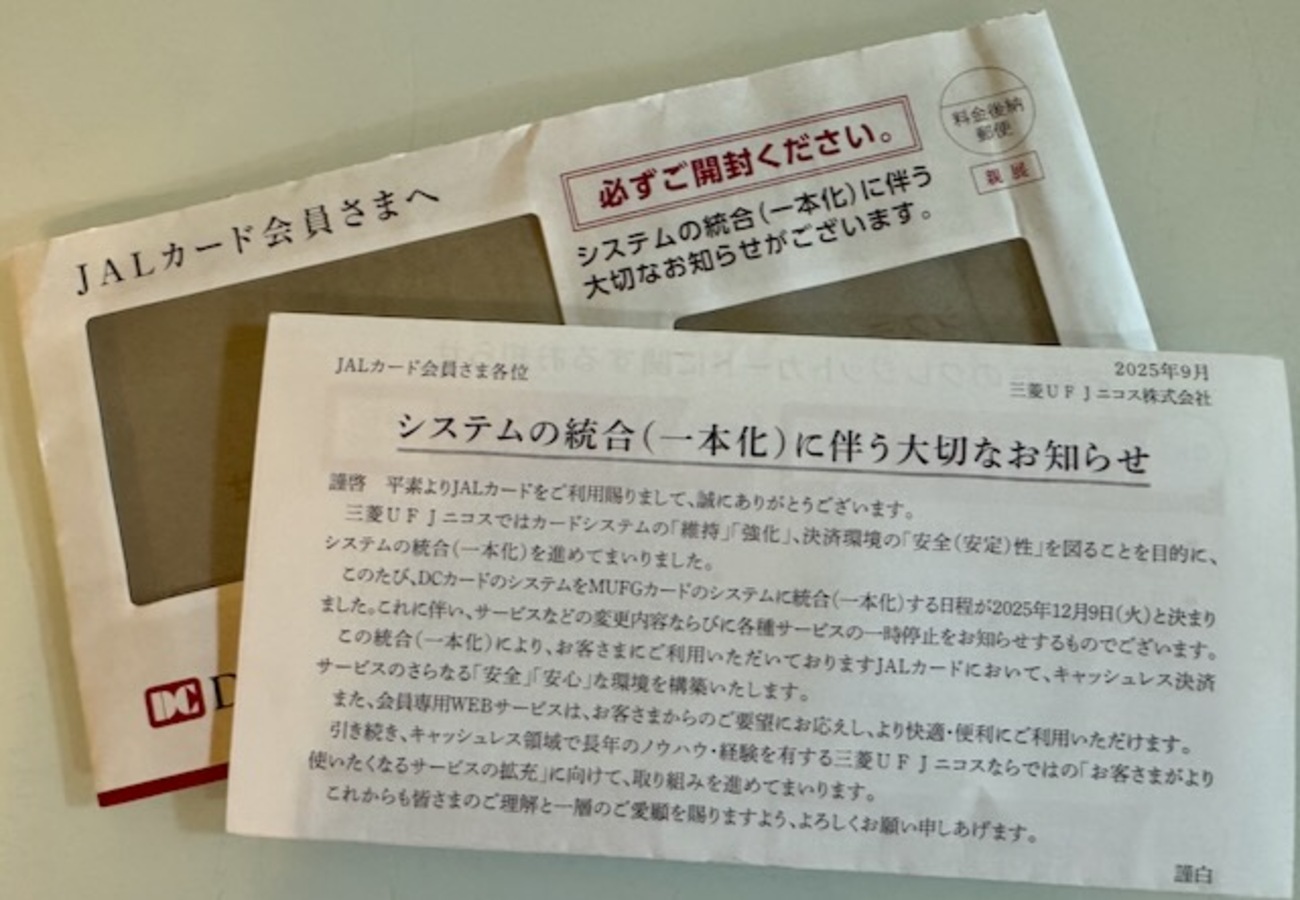 JALカード会員さまへ
必ずご開封ください。
システムの統合(一本化)に伴う
大切なお知らせがございます。
料金後納
郵便
親展
DC
JALカード会員さま各位
2025年9月
三菱UFJニコス株式会社
システムの統合(一本化)に伴う大切なお知らせ
謹啓 平素よりJALカードをご利用賜りまして、誠にありがとうございます。
三菱UFJニコスではカードシステムの「維持」「強化」、決済環境の「安全(安定)性」を図ることを目的に、
システムの統合(一本化)を進めてまいりました。
このたび、DCカードのシステムをMUFGカードのシステムに統合(一本化)する日程が2025年12月9日(火)と決まり
ました。これに伴い、サービスなどの変更内容ならびに各種サービスの一時停止をお知らせするものでございます。
この統合(一本化)により、お客さまにご利用いただいておりますJALカードにおいて、キャッシュレス決済
サービスのさらなる「安全」「安心」な環境を構築いたします。
また、会員専用WEBサービスは、お客さまからのご要望にお応えし、より快適・便利にご利用いただけます。
引き続き、キャッシュレス領域で長年のノウハウ・経験を有する三菱UFJニコスならではの「お客さまがより
使いたくなるサービスの拡充」に向けて、取り組みを進めてまいります。
これからも皆さまのご理解と一層のご愛顧を賜りますよう、よろしくお願い申しあげます。
謹白